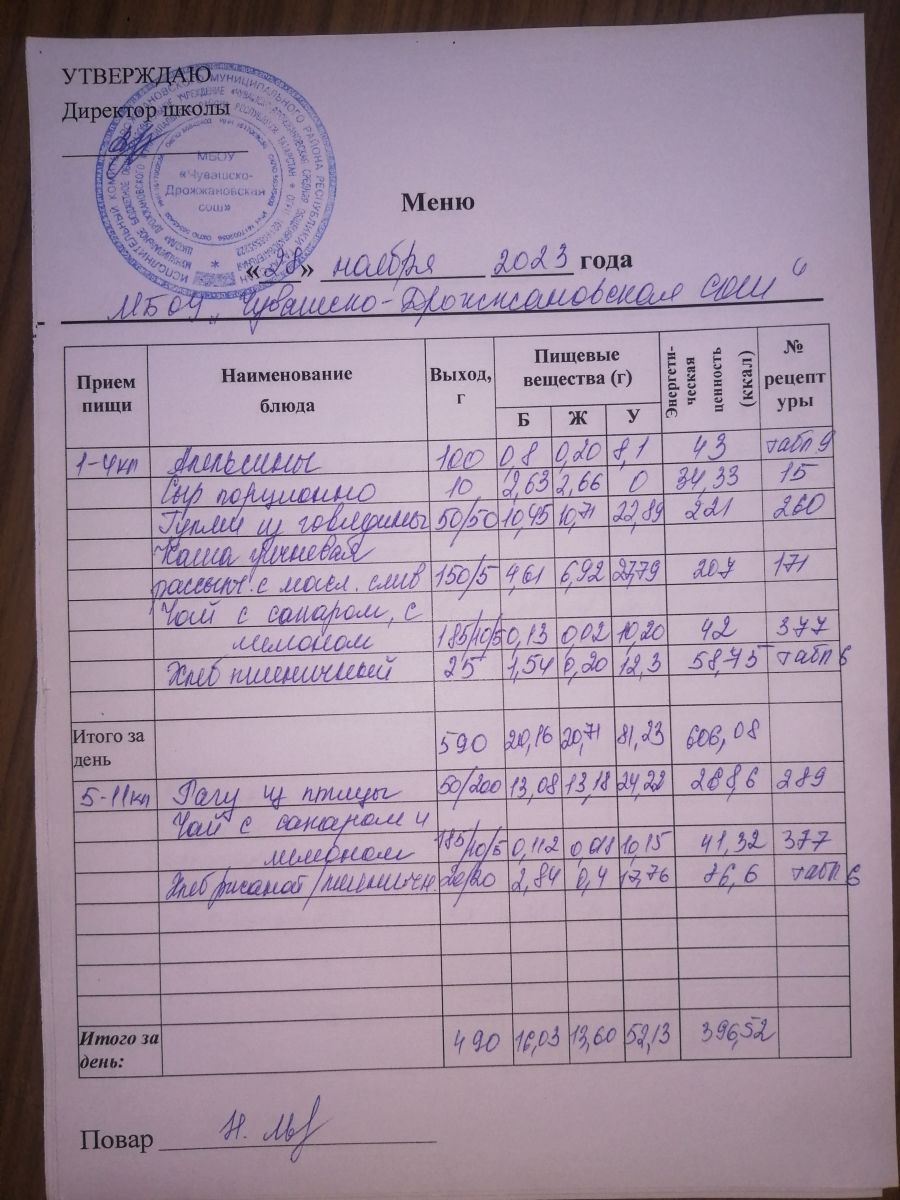 УТВЕРЖДАЮ
Директор школы
МБОУ
«Чувашско-
Дрожжановская
сош»
Меню
«28» ноября 2023 года
МБОУ „Чувашско-Дрожжановская сош“
Прием пищи Наименование блюда Выход, г Пищевые вещества (г) Энергети-ческая ценность (ккал) № рецептуры
Б Ж У
1-4кл Апельсины 100 0,8 0,20 8,1 43 табл 9
Сыр порционно 10 2,63 2,66 0 34,33 15
Гуляш из говядины 50/50 10,45 10,71 22,89 221 260
Каша гречневая
рассыпч. с масл. слив 150/5 4,61 6,92 27,79 207 171
Чай с сахаром, с
лимоном 185/10/5 0,13 0,02 10,20 42 377
Хлеб пшеничный 25 1,54 0,20 12,3 58,75 табл 6
Итого за день 590 20,16 20,71 81,23 606,08
5-11кл Рагу из птицы 50/200 13,08 13,18 24,22 268,6 289
Чай с сахаром и
лимоном 185/10/5 0,112 0,018 10,15 41,32 377
Хлеб ржаной/пшеничн 20/20 2,84 0,4 17,76 86,6 табл 6
Итого за день: 490 16,03 13,60 52,13 396,52
Повар